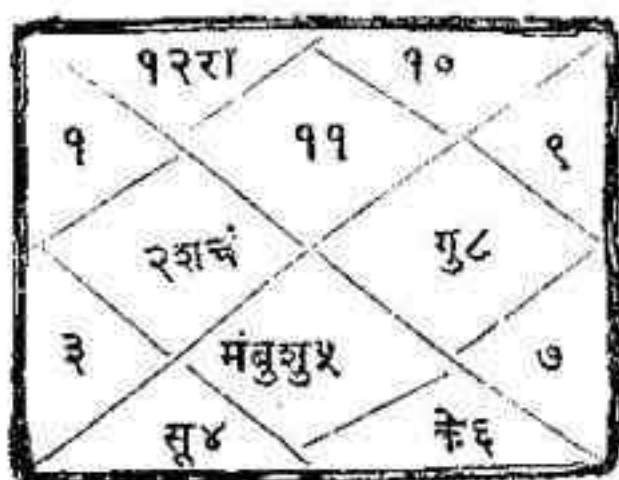 १२रा १०
१ ११ ९
२शचं गु८
३ मंबुशु५ ७
सू४ के६